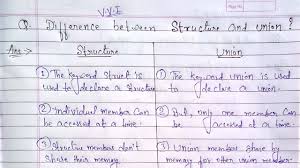 V.V.I
Q. Difference between Structure and union ?
Ans :→ Structure Union
① The keyword struct is used to declare a structure
① The keyword union is used to declare a union.
② Individual member can be accessed at a time.
② But, only one member can be accessed at a time.
③ Structure members don't share their memory.
③ Union member share by memory for other union member